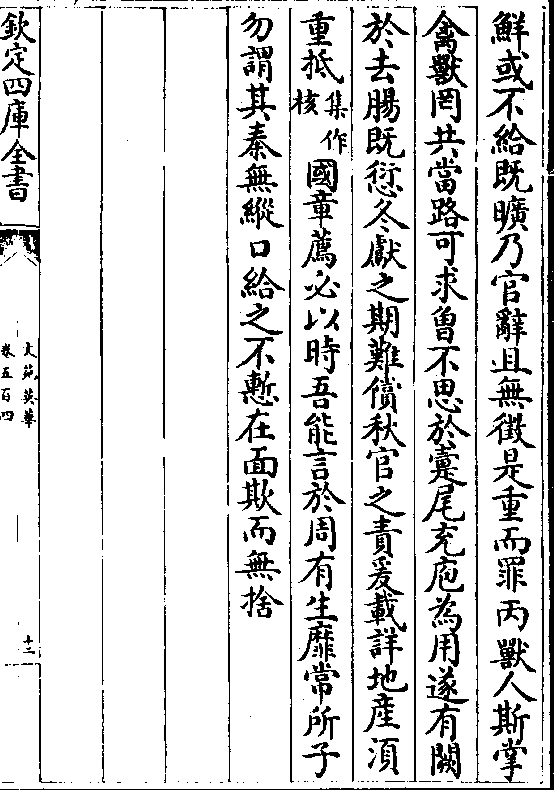 鮮或不給既曠乃官辭且無徵是重而罪丙獸人斯掌
禽獸罔共當路可求曾不思於疐尾充庖為用遂有闕
於去腸既愆冬獻之期難償秋官之責爰載詳地産湏
重抵集作核國章薦必以時吾能言於周有生靡常所子
勿謂其秦無縱口給之不慙在面欺而無捨
欽定四庫全書
文苑英華
卷五百四
十二